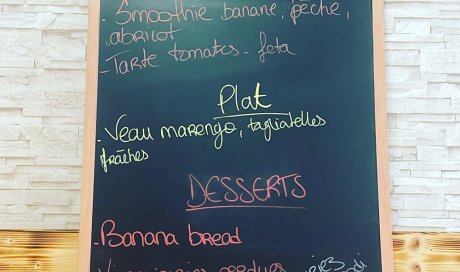 - Smoothie banane, pêche,
abricot
- Tarte tomates - feta
Plat
- Veau marengo, tagliatelles
fraîches
DESSERTS
- Banana bread